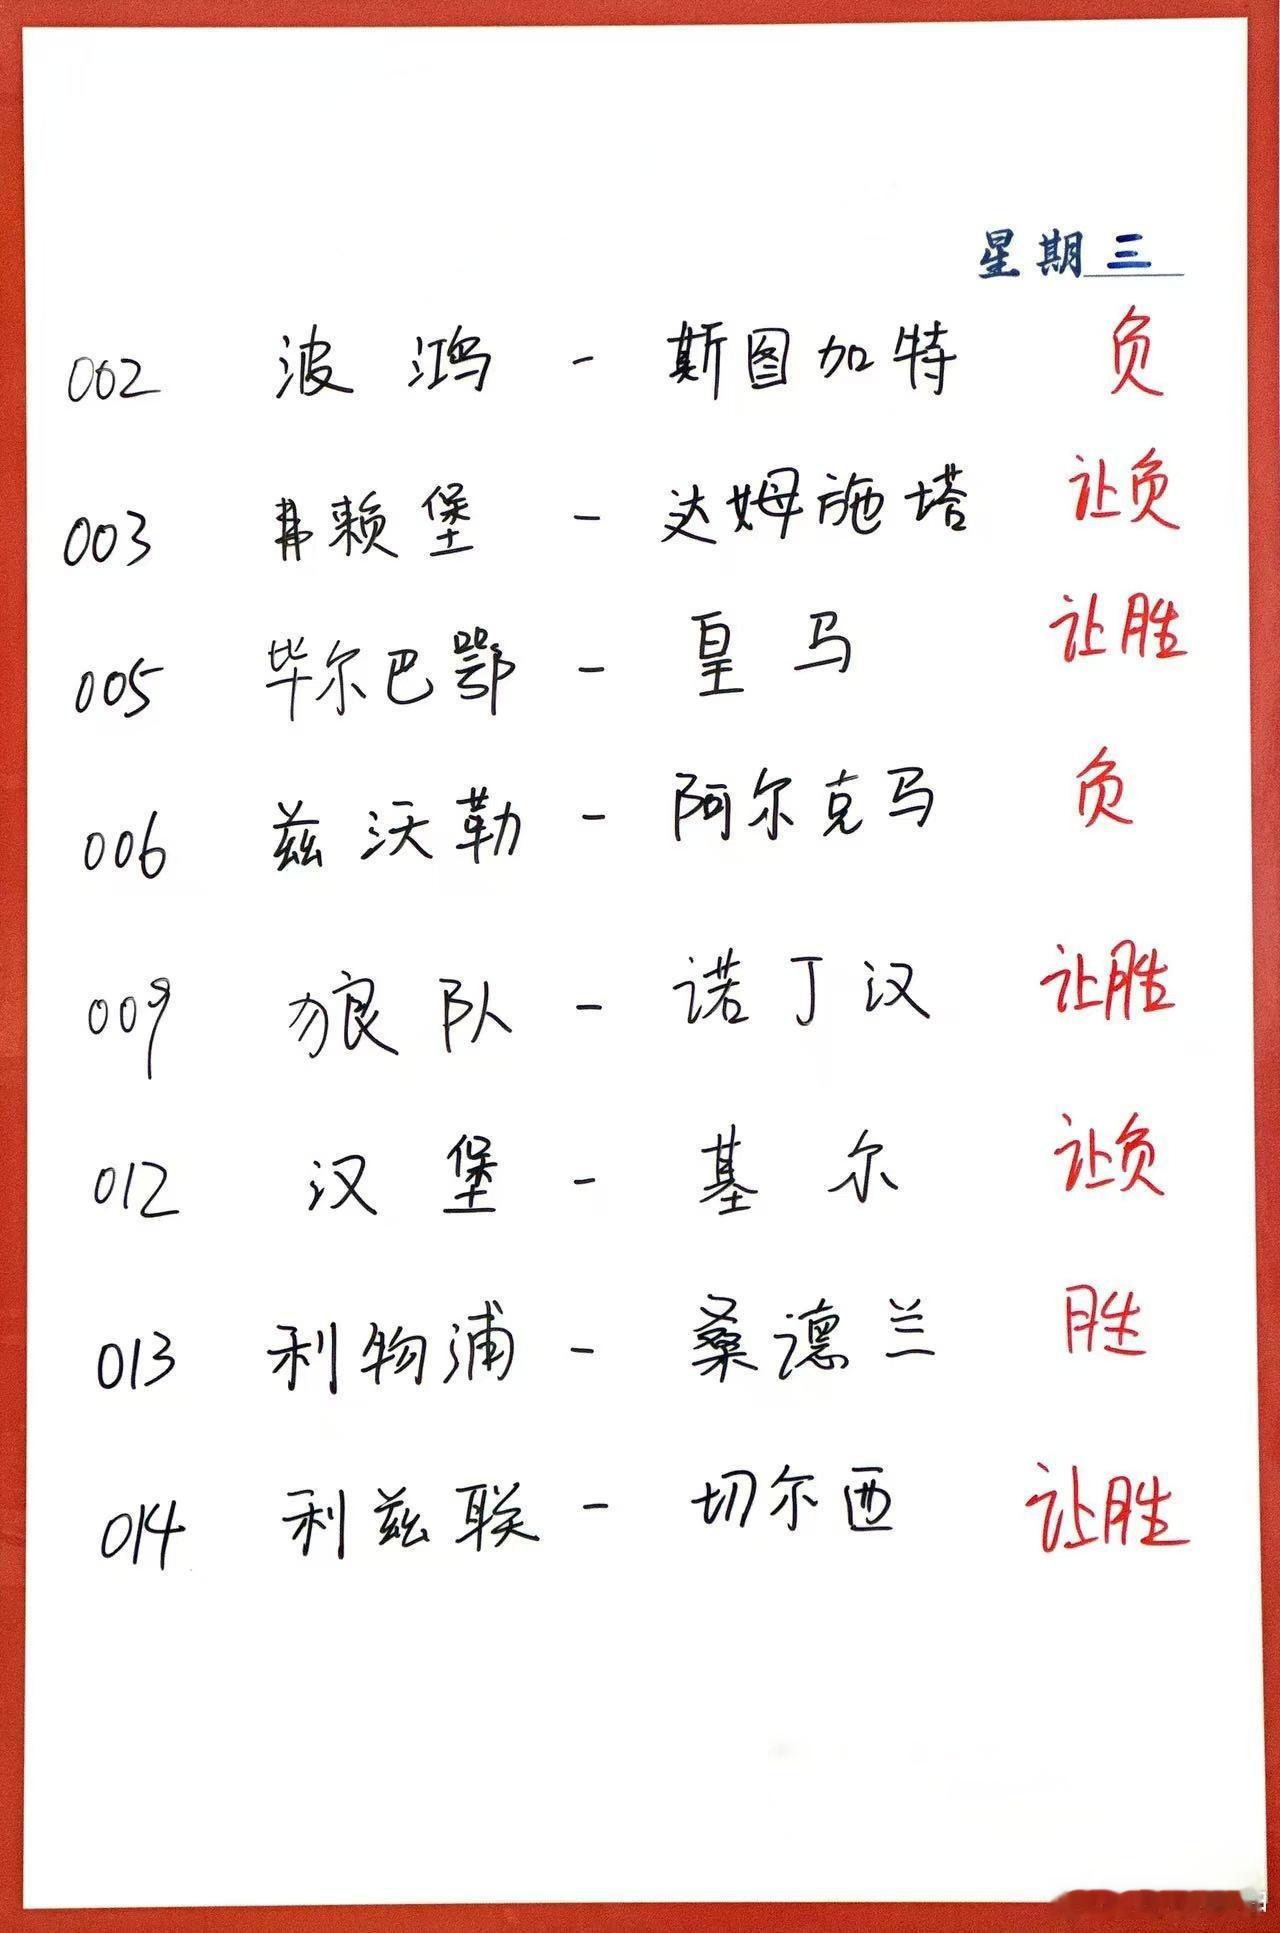 星期三
002 波鸿 - 斯图加特 负
003 弗赖堡 - 达姆施塔 让负
005 毕尔巴鄂 - 皇马 让胜
006 兹沃勒 - 阿尔克马 负
009 狼队 - 诺丁汉 让胜
012 汉堡 - 基尔 让负
013 利物浦 - 桑德兰 胜
014 利兹联 - 切尔西 让胜